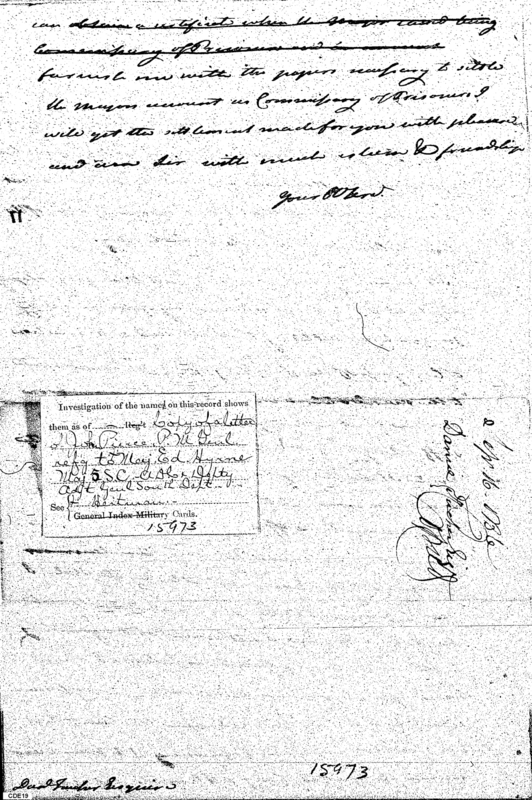 can obtain a certificate when the Major cannot being
Commissary of Prisoners and
furnish me with the papers necessary to settle
the majors account as Commissary of Prisoners I
will get the settlement made for you with pleasure
and am Sir with much esteem & friendship
your Ob Serv.
Investigation of the names on this record shows
them as of Reg't Copy of a letter
Pierce, P. M. Genl.
refg to Maj. Ed Hyrne
Maj 5 S.C. also Dpty
Adjt Genl South Dept.
See Heitman.
General Index Military Cards.
15973
Daniel
15973
Esquire
CDE19